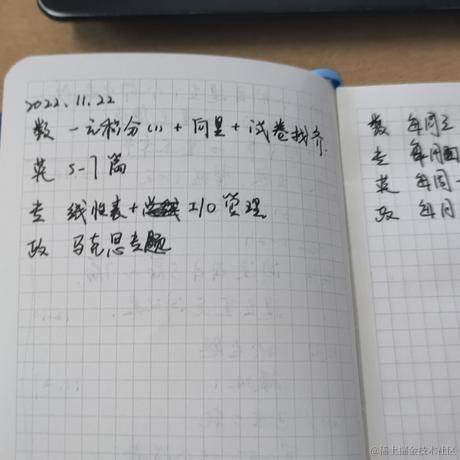 2022.11.22
数 一元积分(1) + 向量 + 试卷找齐.
英 5-7篇
专 线性表 + I/O 管理
政 马克思专题
数 每周三
专 每周四
英 每周一
政 每周
@稀土掘金技术社区